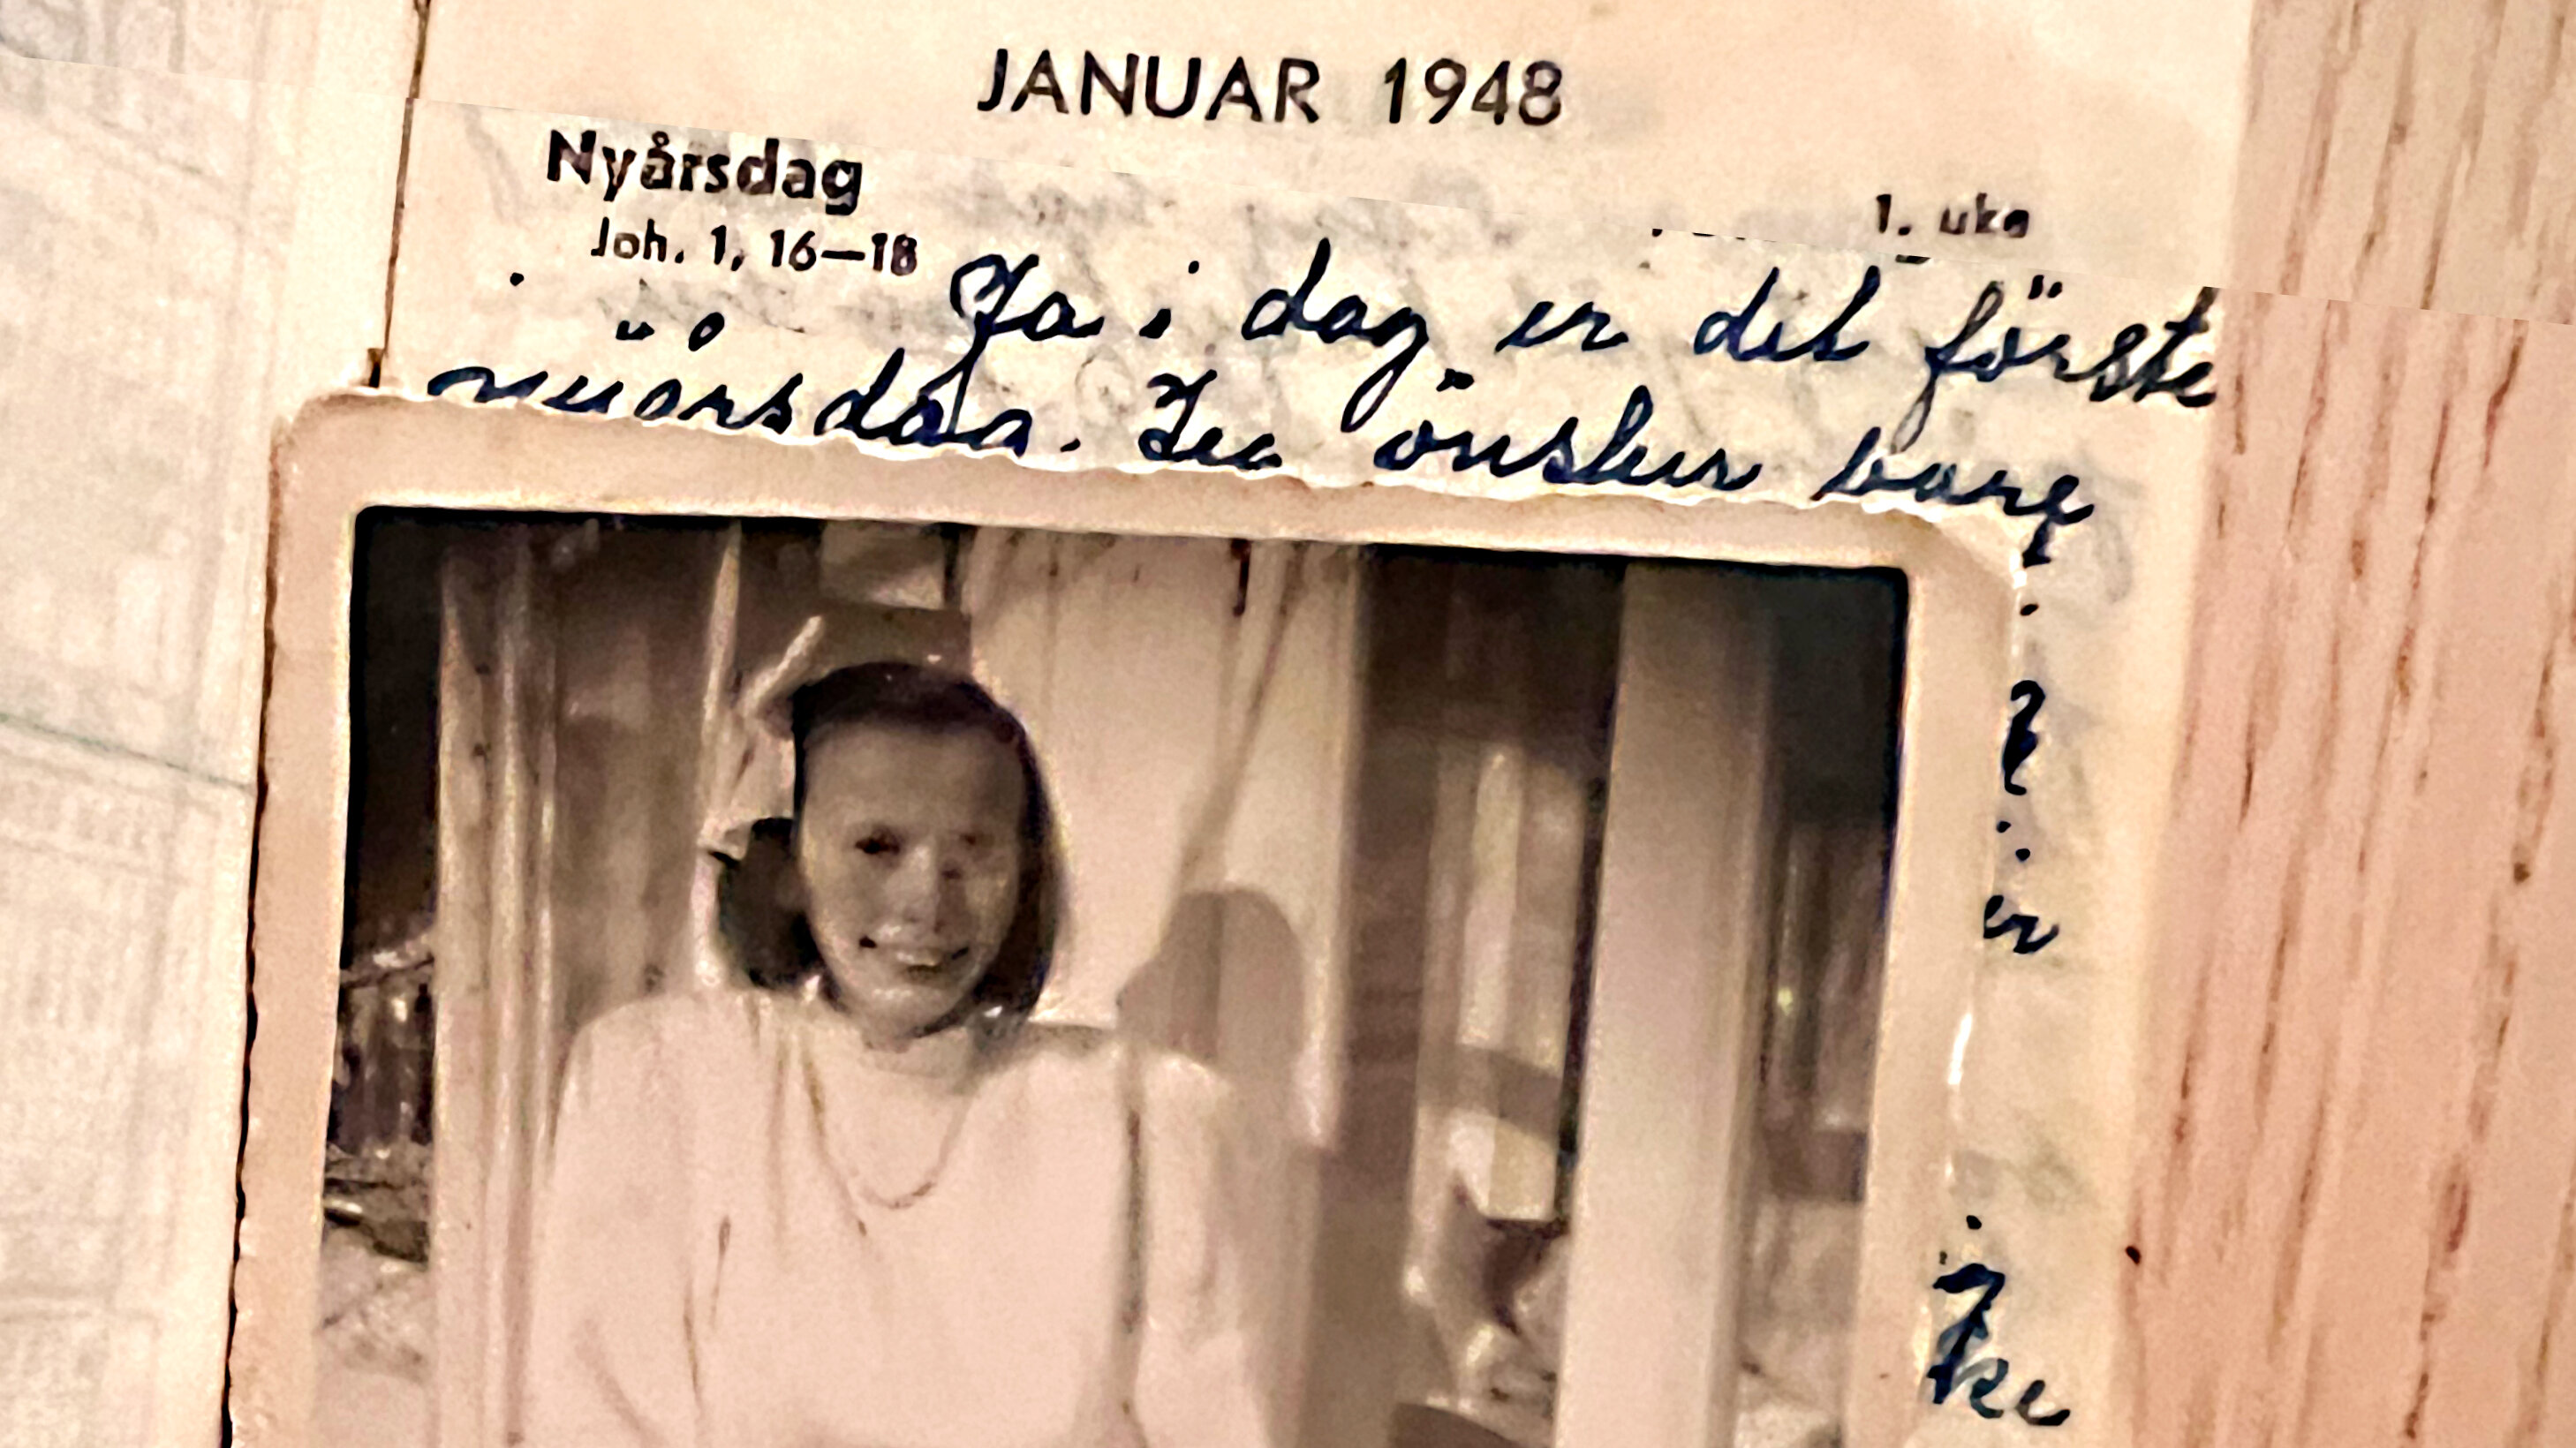 JANUAR 1948
Nyårsdag
1. uke
Joh. 1, 16—18
Ja i dag er det förste
nyårsdag. Jeg önsker bare
er